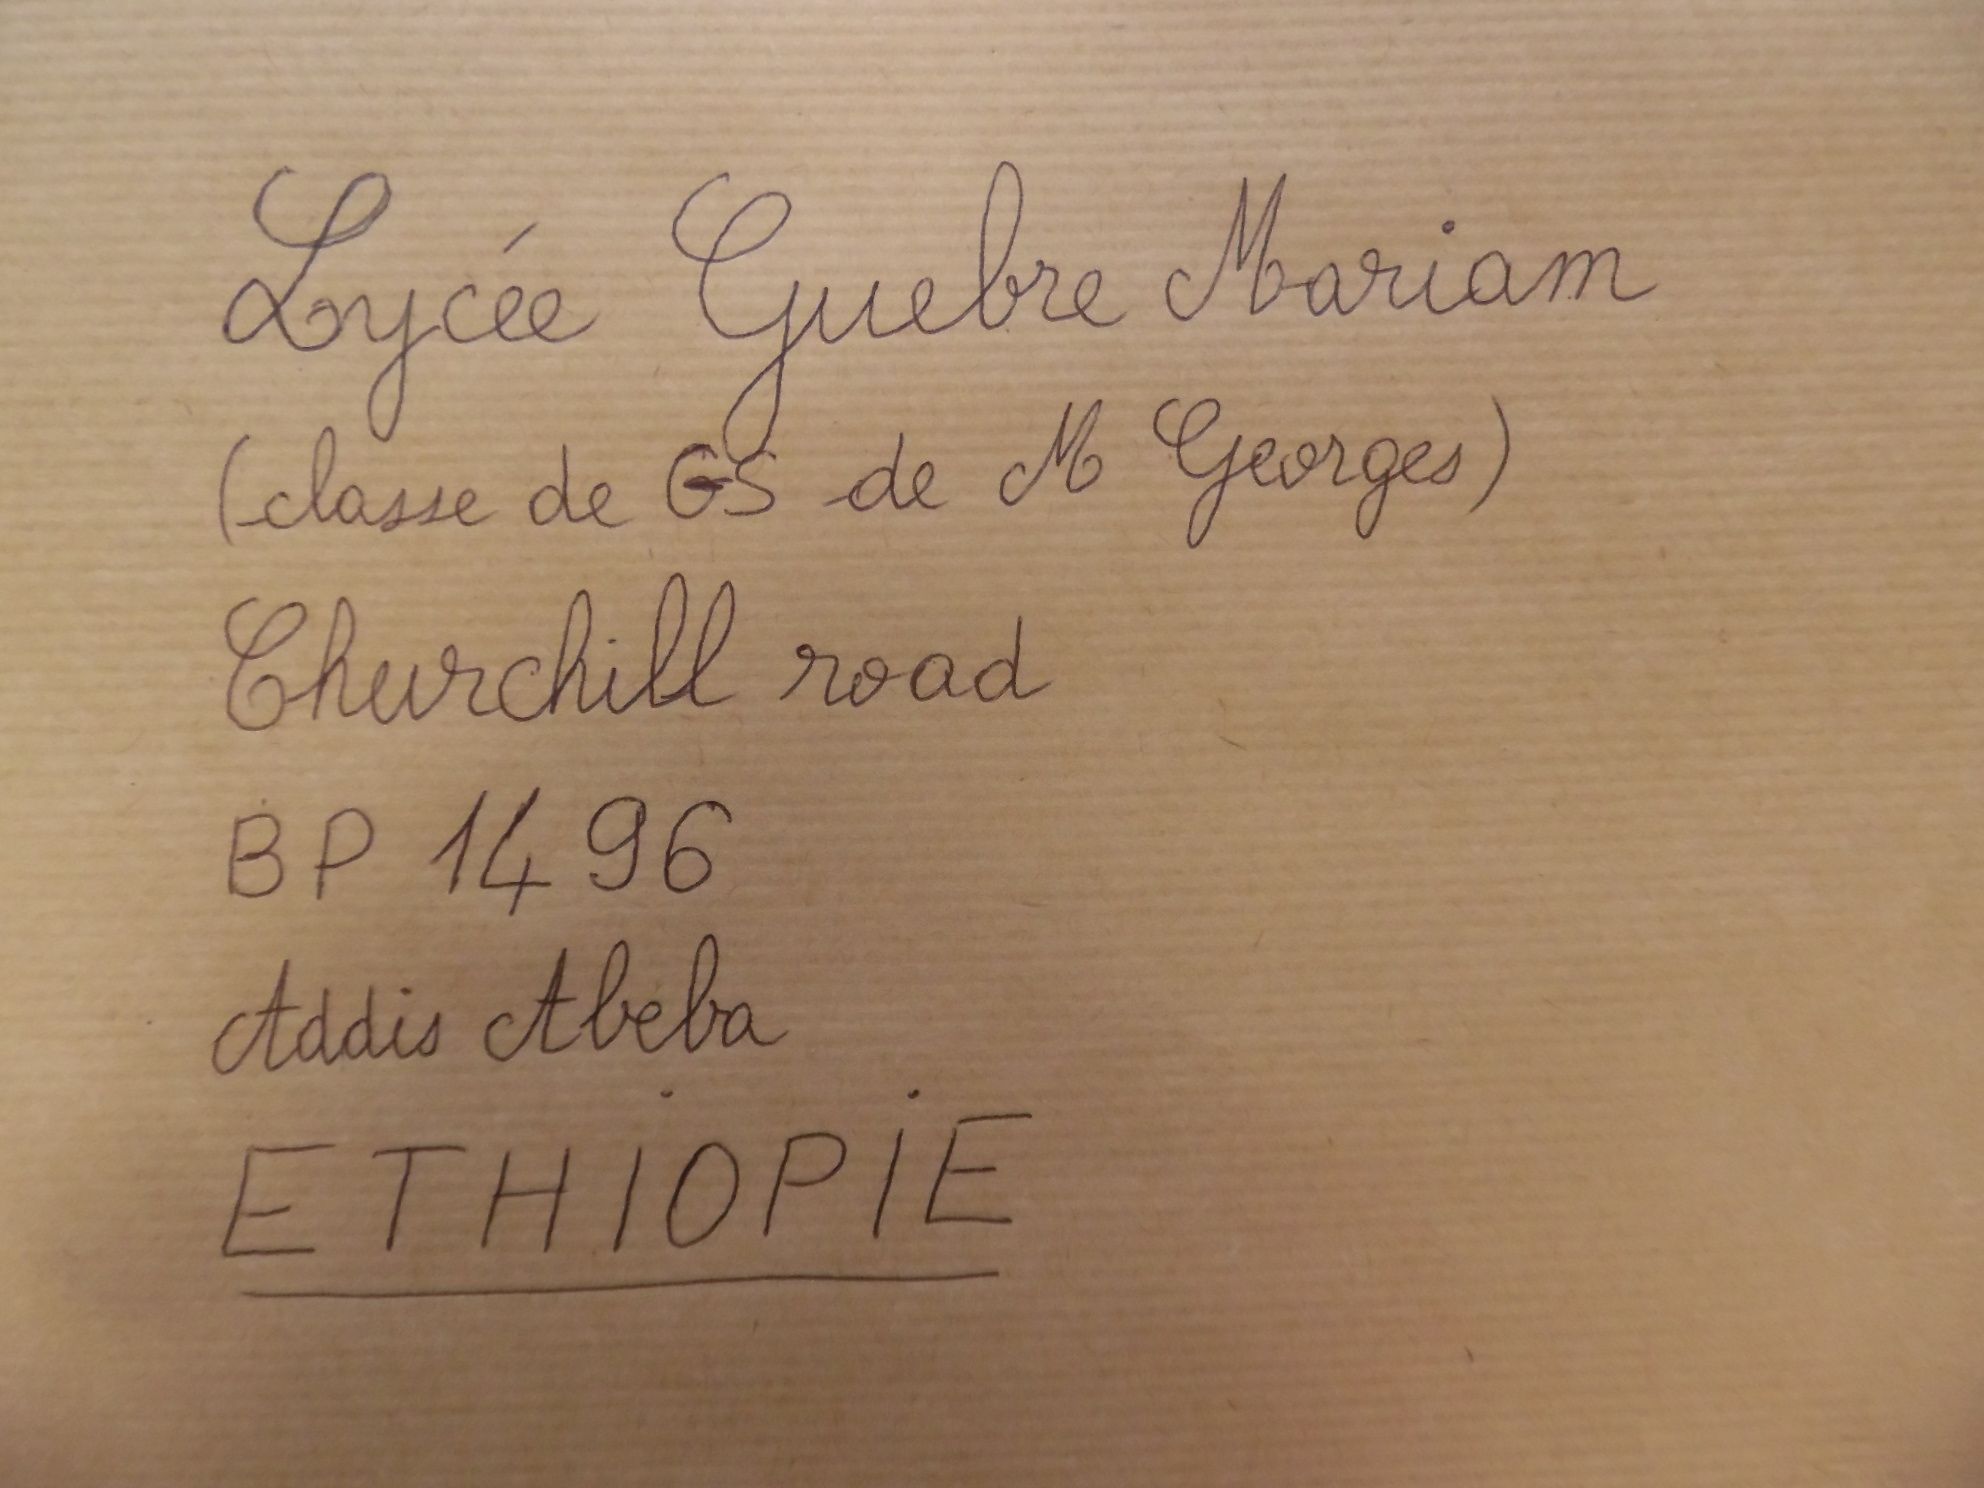 Lycée Guebre Mariam
(classe de GS de M Georges)
Churchill road
BP 1496
Addis Abeba
ETHIOPIE